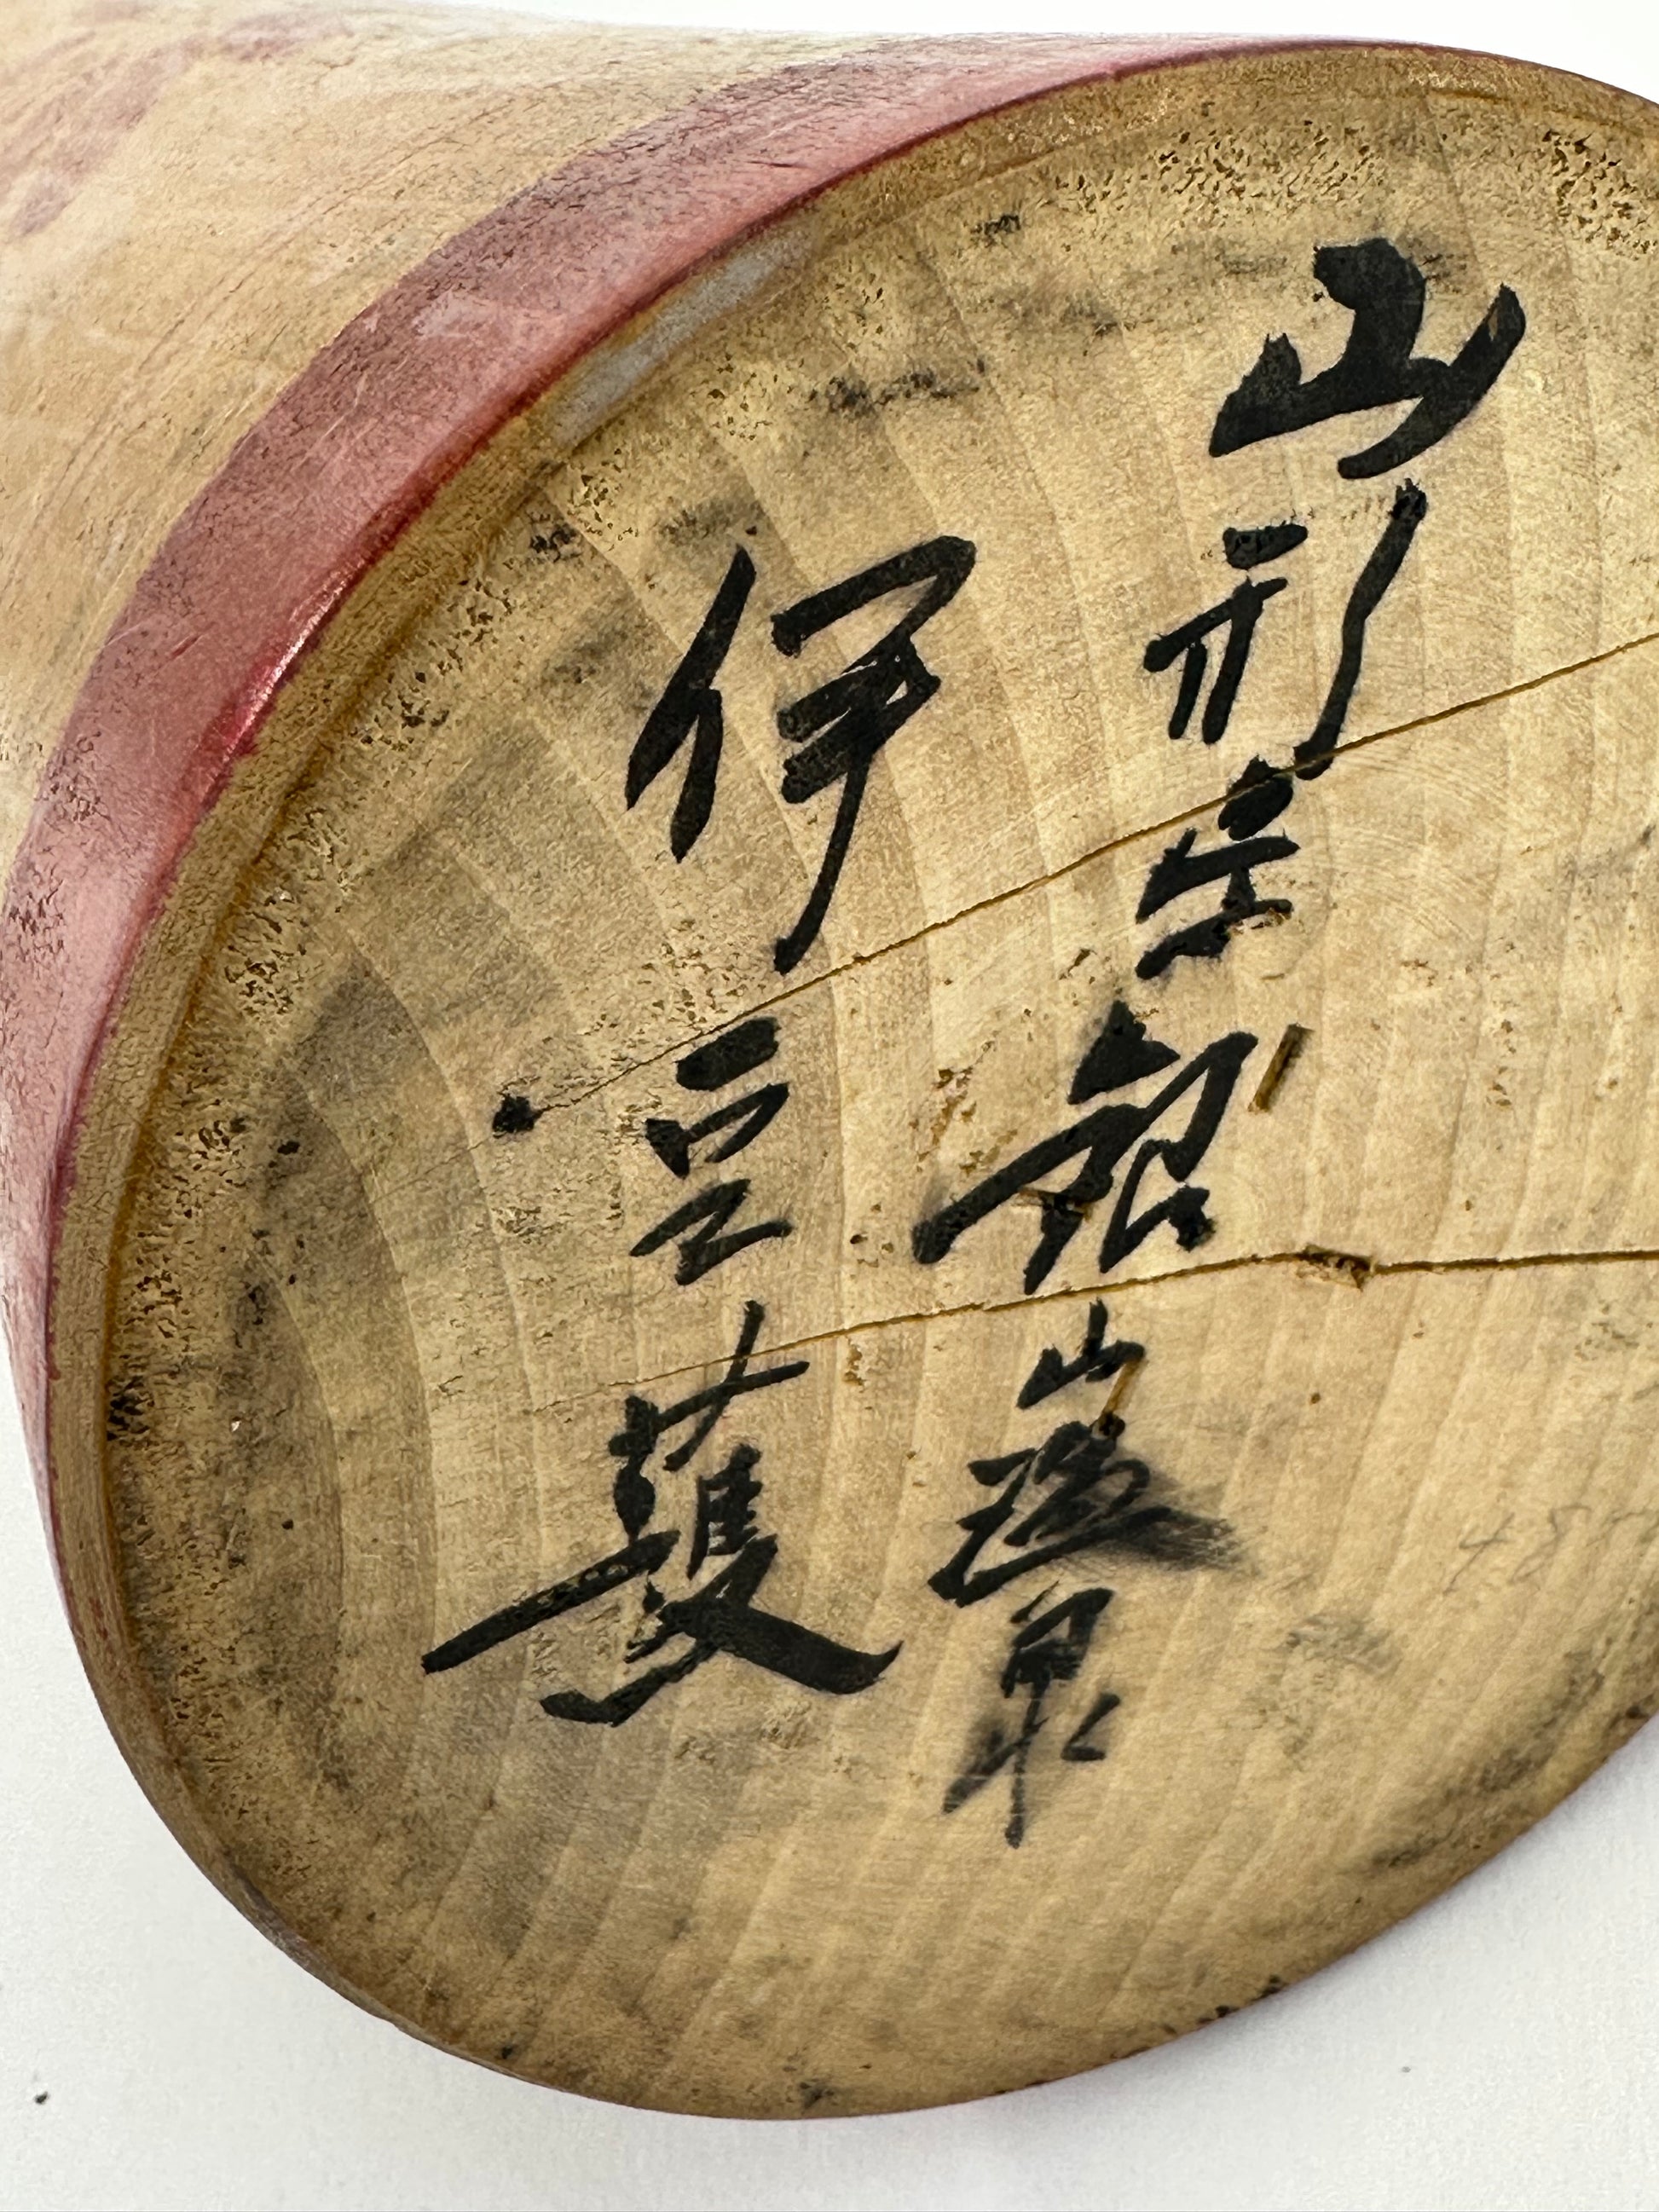 山形県銀山温泉
伊豆護